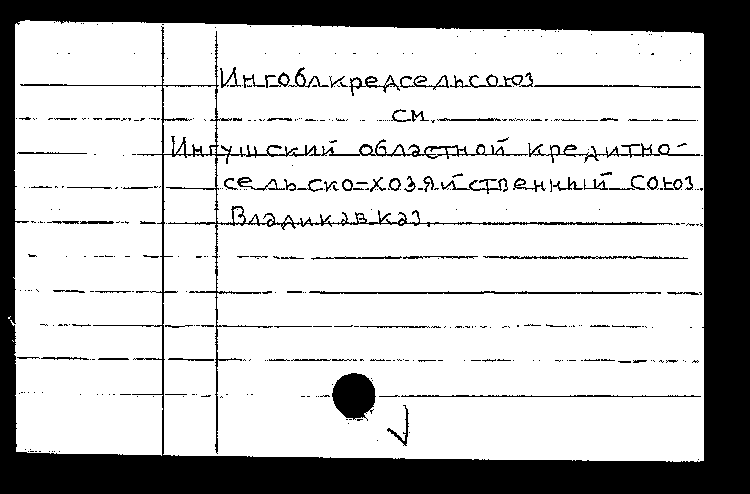 Ингоблкредсельсоюз
см.
Ингушский областной кредитно-
сельско-хозяйственный союз.
Владикавказ.